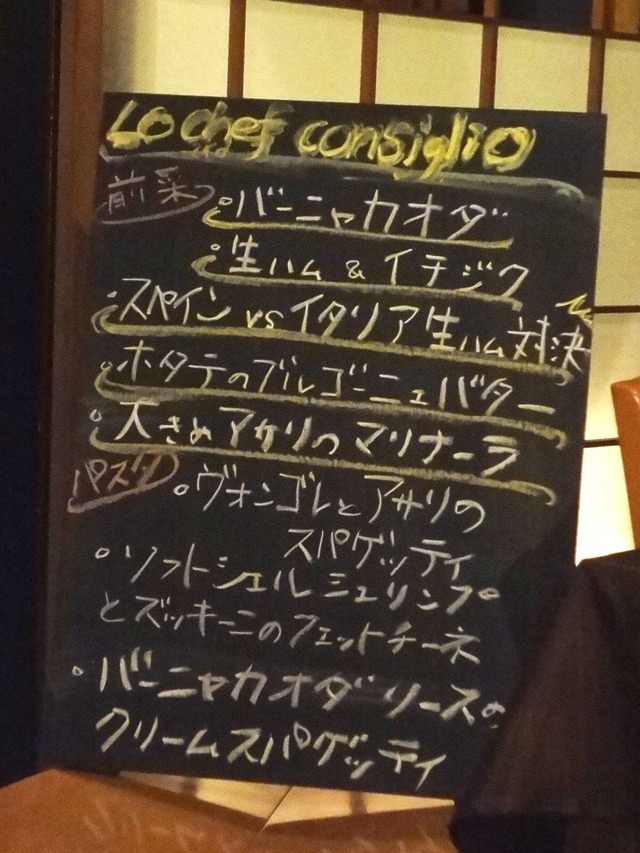 Lo chef consiglio
前菜 ・バーニャカオダ
・生ハム & イチジク
・スペイン vs イタリア生ハム対決
・ホタテのブルゴーニュバター
・大きめアサリのマリナーラ
パスタ ・ヴォンゴレとアサリの
スパゲッティ
・ソフトシェルシュリンプ
とズッキーニのフェットチーネ
・バーニャカオダソースの
クリームスパゲッティ